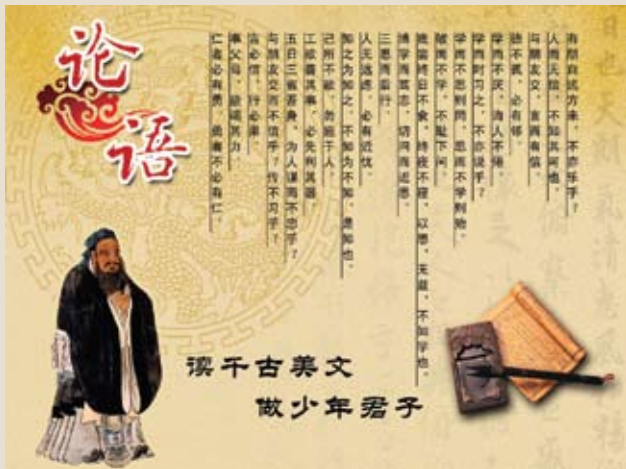 论语
有朋自远方来，不亦乐乎？
人而无信，不知其可也。
与朋友交，言而有信。
德不孤，必有邻。
学而不厌，诲人不倦。
学而时习之，不亦说乎？
学而不思则罔，思而不学则殆。
敏而不学，不耻下问。
终日不食，终夜不寝，以思，无益，不如学也。
博学而笃志，切问而近思。
三思而后行。
人无远虑，必有近忧。
知之为知之，不知为不知，是知也。
己所不欲，勿施于人。
工欲善其事，必先利其器
五日三省吾身，为人谋而不忠乎？
与朋友交而不信乎？传不习乎？
言必信，行必果。
事父母，能竭其力。
仁者必有勇，勇者不必有仁。
读千古美文
做少年君子